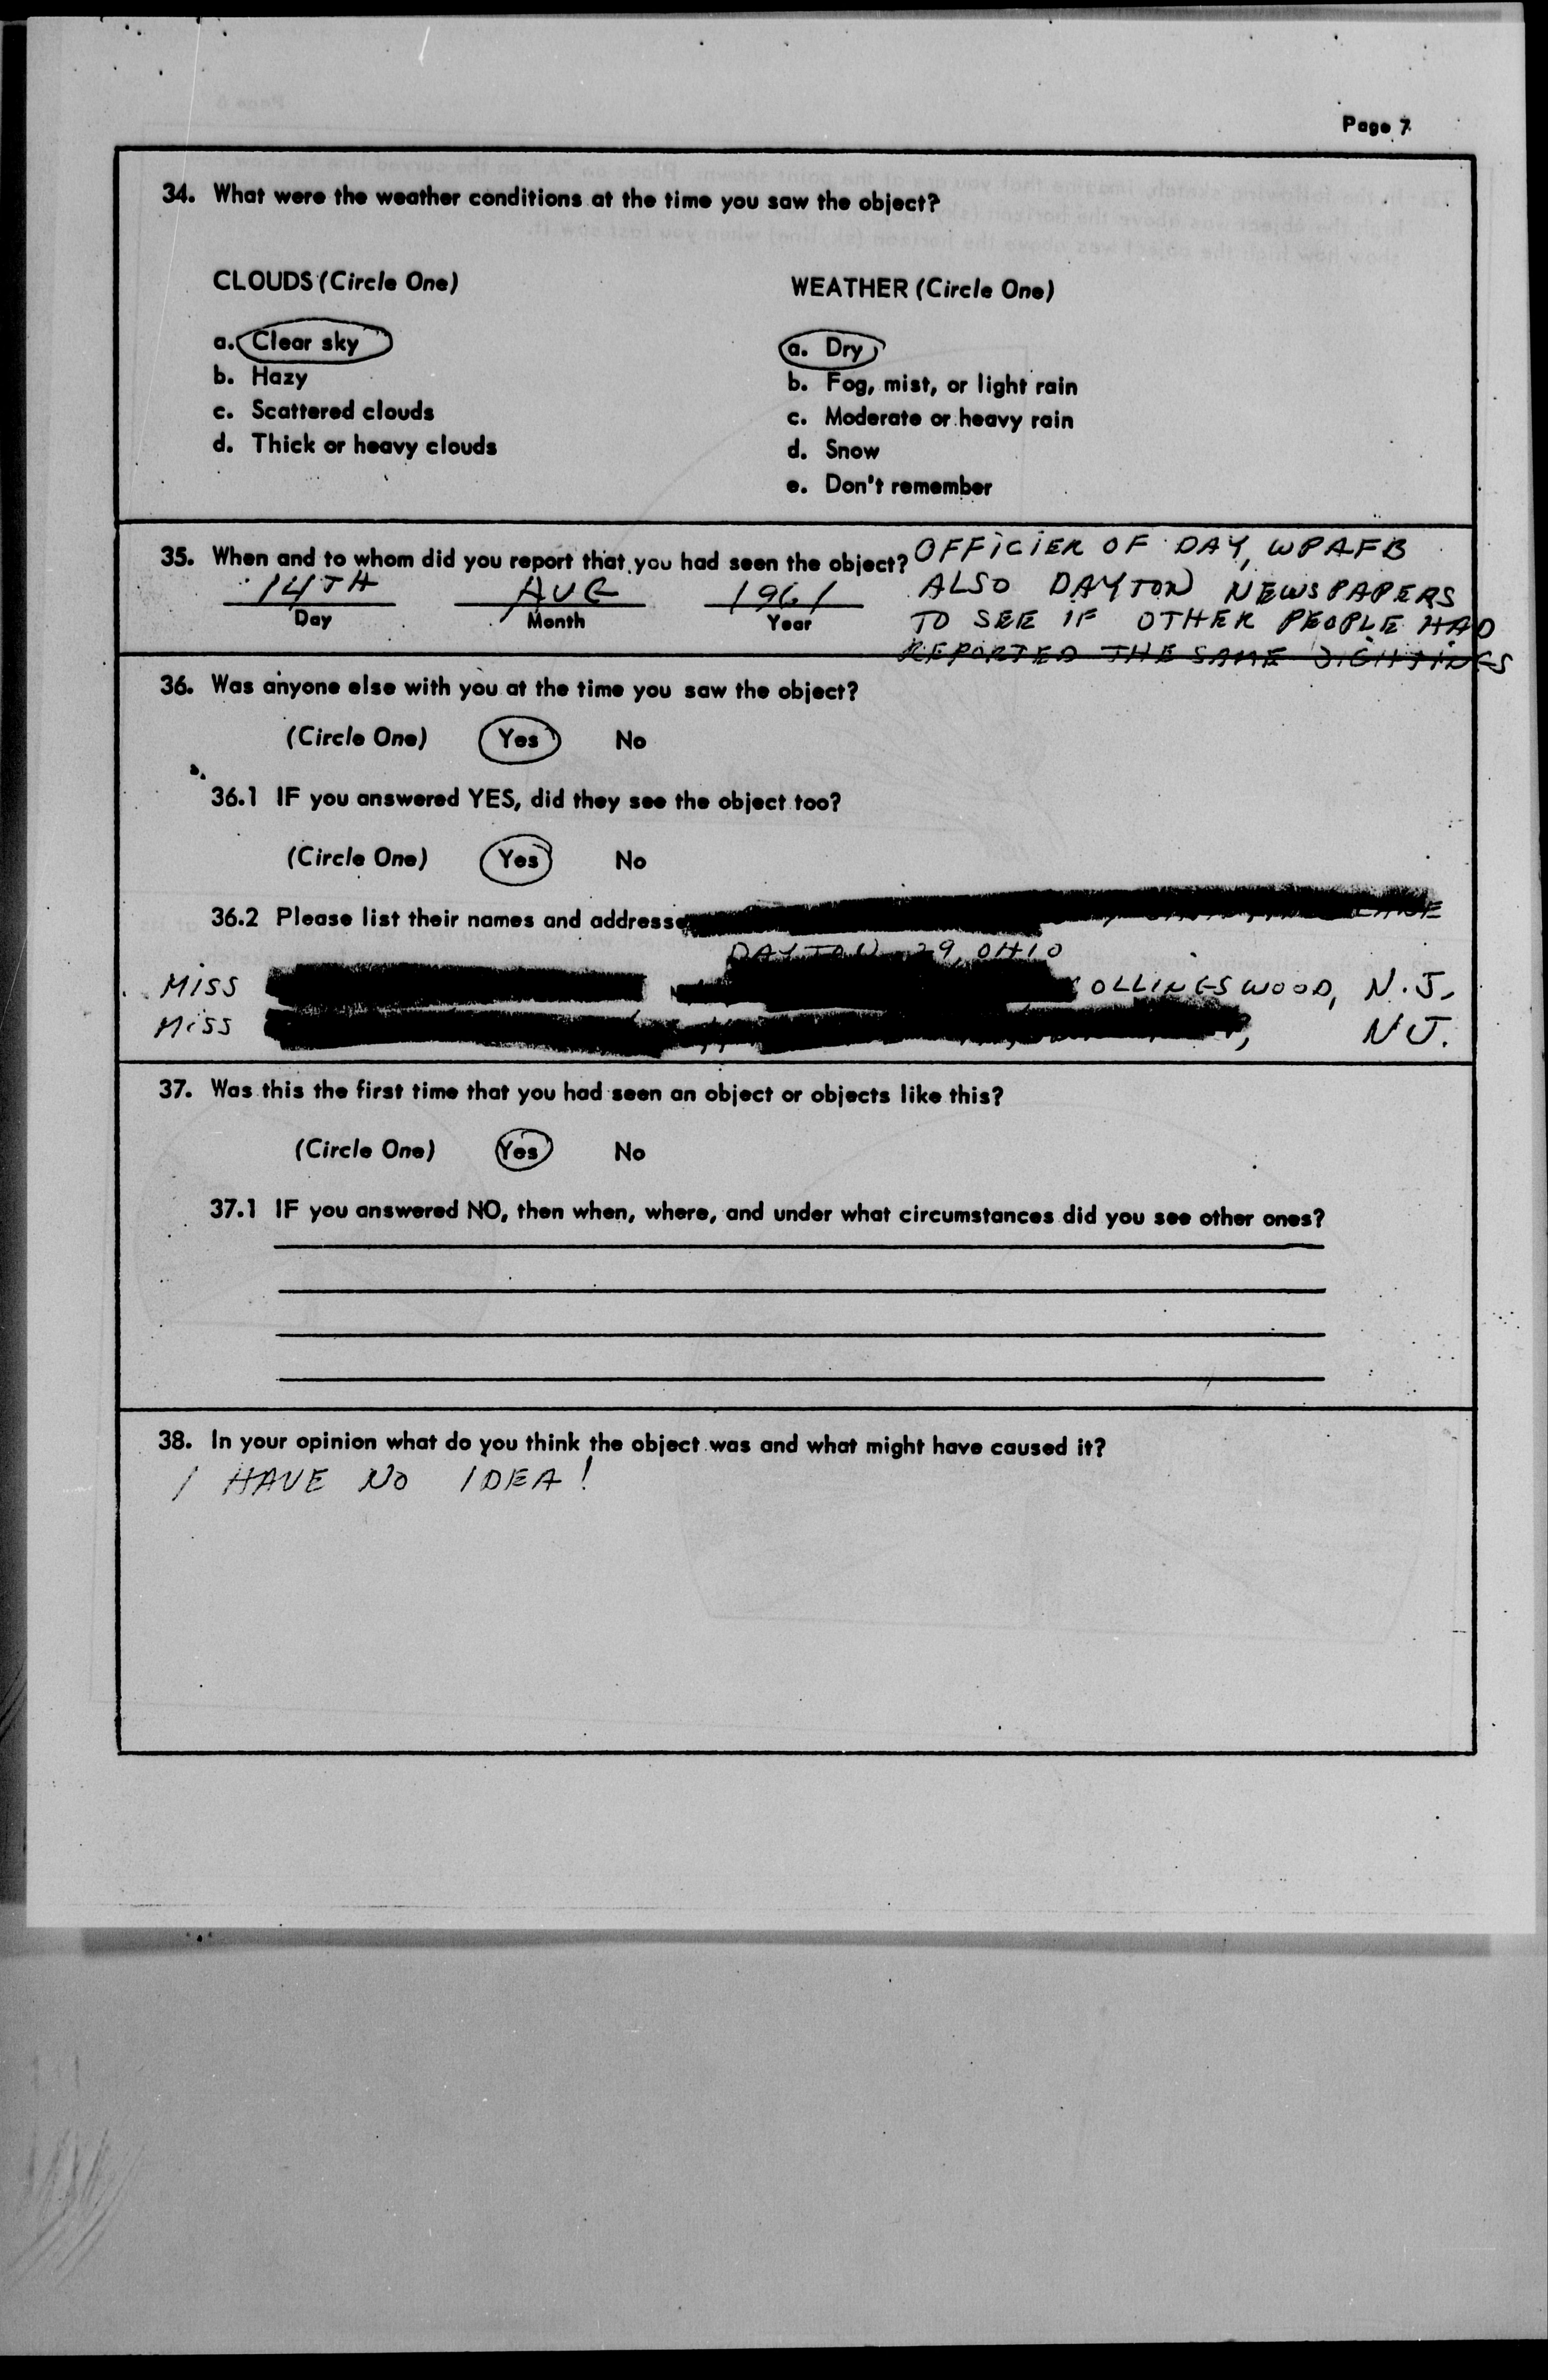 Page 7
34. What were the weather conditions at the time you saw the object?
CLOUDS (Circle One)
a. Clear sky
b. Hazy
c. Scattered clouds
d. Thick or heavy clouds
WEATHER (Circle One)
a. Dry
b. Fog, mist, or light rain
c. Moderate or heavy rain
d. Snow
e. Don't remember
35. When and to whom did you report that you had seen the object? OFFICIER OF DAY, WPAFB
14TH AUG 1961 ALSO DAYTON NEWSPAPERS
Day Month Year TO SEE IF OTHER PEOPLE HAD
REPORTED THE SAME SIGHTINGS
36. Was anyone else with you at the time you saw the object?
(Circle One) Yes No
36.1 IF you answered YES, did they see the object too?
(Circle One) Yes No
36.2 Please list their names and addresses
DAYTON 29, OHIO
MISS COLLINGSWOOD, N.J.
MISS NJ.
37. Was this the first time that you had seen an object or objects like this?
(Circle One) Yes No
37.1 IF you answered NO, then when, where, and under what circumstances did you see other ones?
38. In your opinion what do you think the object was and what might have caused it?
I HAVE NO IDEA!